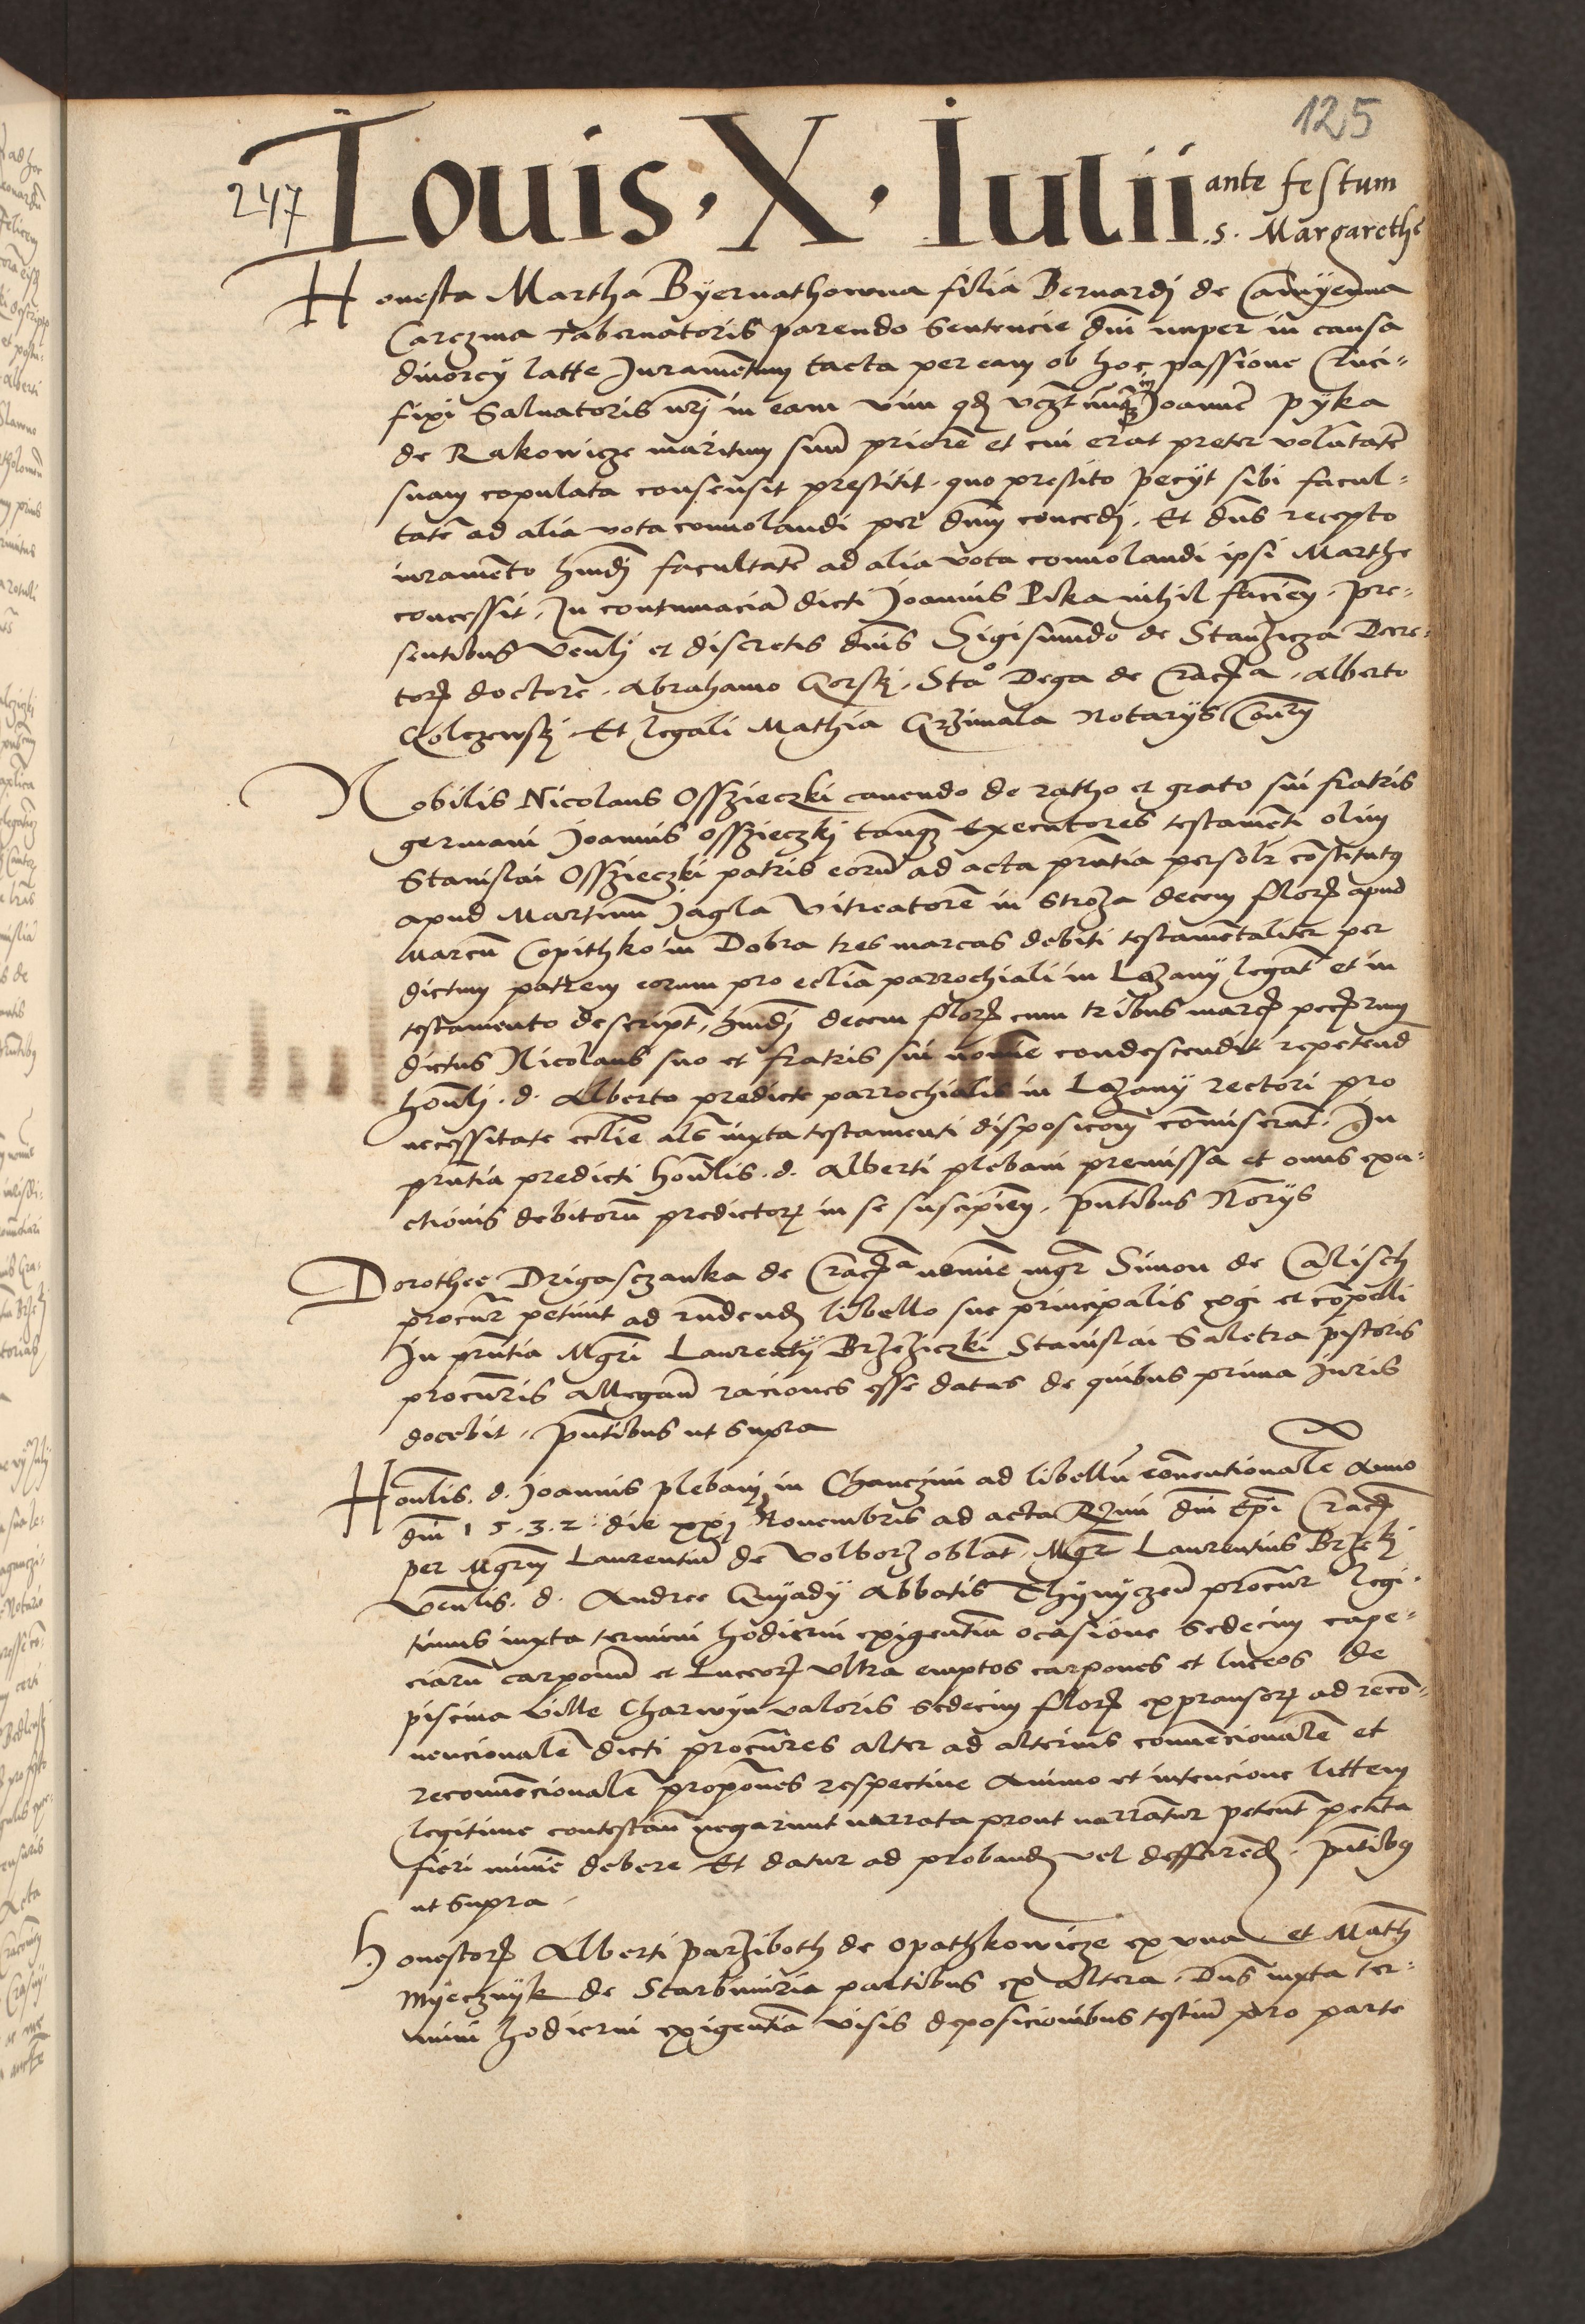 125
247
Iouis · X · Iulii ante festum
.s. Margarethe
Honesta Martha Byernathowna filia Bernardj de Camyenna
Carczma Tabernatoris parendo Sentencie dni nuper in causa
diuorcy latte Juramentum tacta per eam ob hoc passione Cruci-
fixi Saluatoris nrj in eam vim qd in Joanne Pyka
de Rakowicze maritum suu priore et cui erat preter voluntate
suam copulata consensit prestitit. quo prestito pecyt sibi facul-
tate ad alia vota conuolandi per dnm concedj. Et dns recepto
iuramento hmdj facultate ad alia vota conuolandi ipsi Marthe
concessit. In contumacia dicti Joannis Pika nihil facien. Pre-
sentibus Venlj et discretis dnis Sigismundo de Stanzicza Decre-
tor doctore. Abrahamo Gorskj. Sta° Dega de Crac a. Alberto
Golczewskj. Et legali Mathia Grzimala Notarys Con
Nobilis Nicolaus Osszieczki cauendo de ratho et grato sui fratris
germani Joannis Osszieczkj tanq Executores testamenti olim
Stanislai Osszieczki patris eoru ad acta pntia persolr constitutus
apud Martinu Jagla Vitreatore in Stroza decem flor apud
Marcu Copithko in Dobra tres marcas debiti testamentaliter per
dictum patrem eorum pro eclia parrochiali in Lazany legat et in
testamento descript. hmdj decem flor cum tribus marc
dictus Nicolaus suo et fratris sui nomie condescendit repetend
honlj. d. Alberto predicte parrochialis in Lazany rectori pro
necessitate eclie als iuxta testamenti disposicom comiserat. In
pntia predicti honlis. d. Alberti plebani premissa et onus exa-
ctionis debitoru predictor in se suscipien. pntibus Norys
Dorothee Drigasczanka de Crac a nomie mgr Simon de Calisch
procur petiuit ad rndend libello sue principalis cogi et compelli
In pntia Mgri Laurenty Brzezieczki Stanislai Saletra pistoris
procuris allegan raciones esse datas de quibus prima Juris
docebit. pntibus ut supra
Honlis. d. Joannis plebanj in Chanczini ad libellu conuentionale Anno
dni 1 5 . 3 . 2. die xxj Nouembris ad acta dni Epi Crac
per Mgrm Laurentiu de Volborz oblat. Mgr Laurentius Brze
Venlis. d. Andree Gnyady Abbatis Thynyczen procur legi-
timus iuxta termini hodierni exigentia ocasione sedecim cape-
ciaru carponu et luceor ultra emptos carpones et luceos de
piscina ville Charwyn valoris sedecim flor expransor ad recon-
uencionale dicti procures alter ad alterius conuencionale et
reconuencionale propones respectiue Animo et intencione littem
legitime contestan negarunt narrata prout narrantur petent petita
fieri minime debere Et datur ad proband vel defferend. pntibus
ut supra.
Honestor Alberti parziboth de Opathkowicze ex vna et Math
Myecznyk de Starbimiria partibus ex altera. Dns iuxta ter-
mini hodierni exigentia visis deposicionibus testiu pro parte